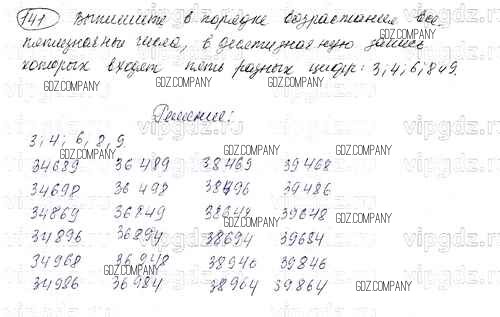 741 Выпишите в порядке возрастания все
пятизначные числа, в десятизначную запись
которых входят пять разных цифр: 3; 4; 6; 8 и 9.
GDZ.COMPANY GDZ.COMPANY GDZ.COMPANY
Решение:
3; 4; 6; 8, 9.
GDZ.COMPANY GDZ.COMPANY GDZ.COMPANY
34689 36489 38469 39468
34698 36498 38496 39486
34869 36849 38649 39648
34896 36894 38694 39684
34968 36948 38946 39846
34986 36984 38964 39864
GDZ.COMPANY GDZ.COMPANY GDZ.COMPANY
vipgdz.ru